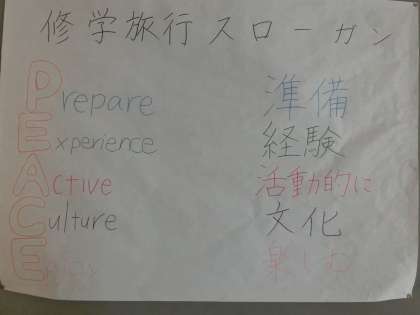 修学旅行スローガン
Prepare 準備
Experience 経験
Active 活動的に
Culture 文化
Enjoy 楽しむ